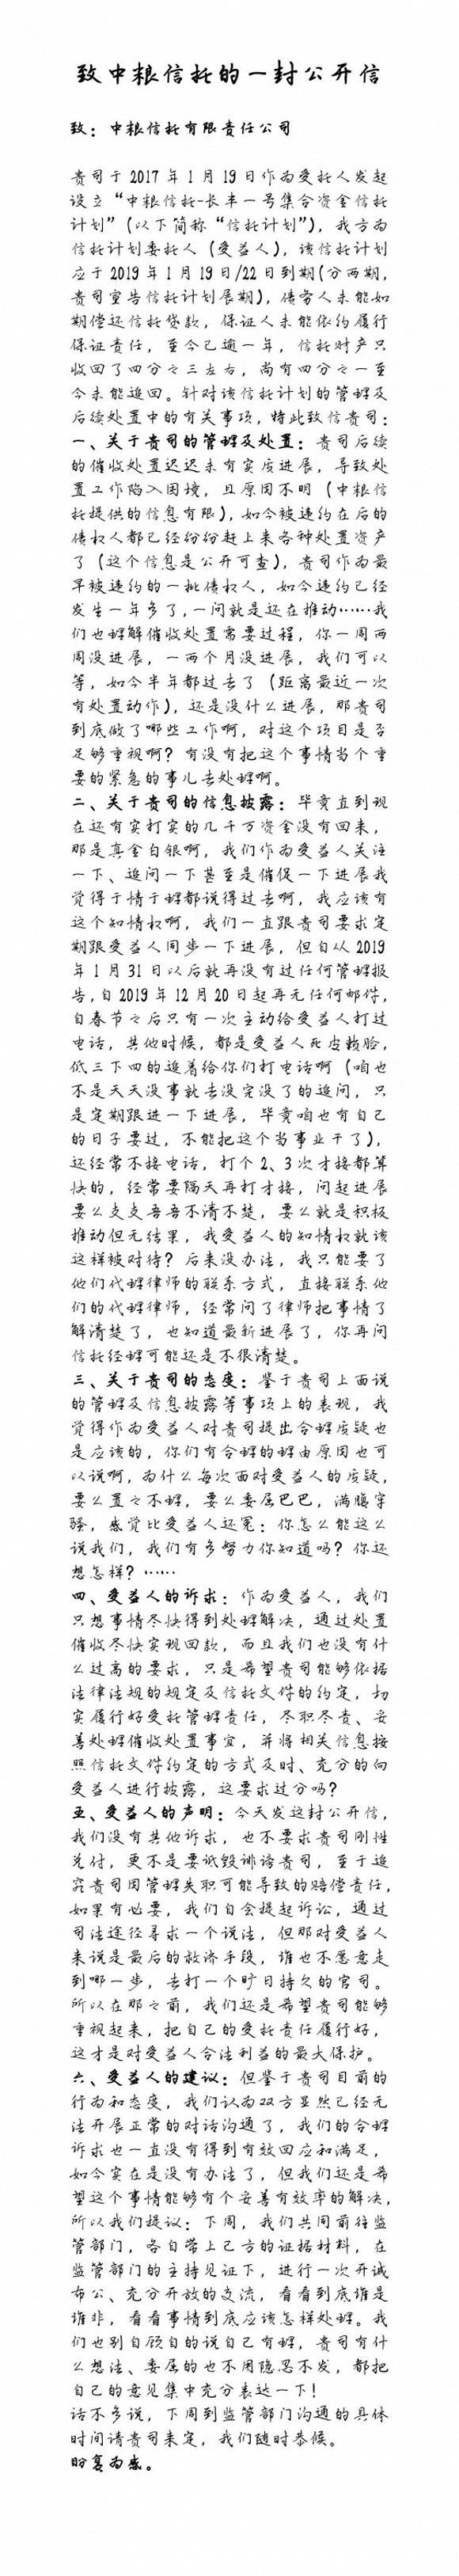 致中粮信托的一封公开信
致：中粮信托有限责任公司
贵司于 2017 年 1 月 19 日作为受托人发起
设立“中粮信托-长丰一号集合资金信托
计划”（以下简称“信托计划”），我方为
信托计划委托人（受益人），该信托计划
应于 2019 年 1 月 19 日/22 日到期(分两期，
贵司宣告信托计划展期)，债务人未能如
期偿还信托贷款，保证人未能依约履行
保证责任，至今已逾一年，信托财产只
收回了四分之三左右，尚有四分之一至
今未能追回。针对该信托计划的管理及
后续处置中的有关事项，特此致信贵司：
一、关于贵司的管理及处置：贵司后续
的催收处置迟迟未有实质进展，导致处
置工作陷入困境，且原因不明（中粮信
托提供的信息有限），如今被违约在后的
债权人都已经纷纷赶上来各种处置资产
了（这个信息是公开可查），贵司作为最
早被违约的一批债权人，如今违约已经
发生一年多了，一问就是还在推动……我
们也理解催收处置需要过程，你一周两
周没进展，一两个月没进展，我们可以
等，如今半年都过去了（距离最近一次
有处置动作），还是没什么进展，那贵司
到底做了哪些工作啊，对这个项目是否
足够重视啊？有没有把这个事情当个重
要的紧急的事儿去处理啊。
二、关于贵司的信息披露：毕竟直到现
在还有实打实的几千万资金没有回来，
那是真金白银啊，我们作为受益人关注
一下、追问一下甚至是催促一下进展我
觉得于情于理都说得过去啊，我应该有
这个知情权啊，我们一直跟贵司要求定
期跟受益人同步一下进展，但自从 2019
年 1 月 31 日以后就再没有过任何管理报
告，自 2019 年 12 月 20 日起再无任何邮件，
自春节之后只有一次主动给受益人打过
电话，其他时候，都是受益人死皮赖脸，
低三下四的追着给你们打电话啊（咱也
不是天天没事就去没完没了的追问，只
是定期跟进一下进展，毕竟咱也有自己
的日子要过，不能把这个当事业干了），
还经常不接电话，打个 2、3 次才接都算
快的，经常要隔天再打才接，问起进展
要么支支吾吾不清不楚，要么就是积极
推动但无结果，我受益人的知情权就该
这样被对待？后来没办法，我只能要了
他们代理律师的联系方式，直接联系他
们的代理律师，经常问了律师把事情了
解清楚了，也知道最新进展了，你再问
信托经理可能还是不很清楚。
三、关于贵司的态度：鉴于贵司上面说
的管理及信息披露等事项上的表现，我
觉得作为受益人对贵司提出合理质疑也
是应该的，你们有合理的理由原因也可
以说啊，为什么每次面对受益人的质疑，
要么置之不理，要么委屈巴巴，满腹牢
骚，感觉比受益人还冤：你怎么能这么
说我们，我们有多努力你知道吗？你还
想怎样？……
四、受益人的诉求：作为受益人，我们
只想事情尽快得到处理解决，通过处置
催收尽快实现回款，而且我们也没有什
么过高的要求，只是希望贵司能够依据
法律法规的规定及信托文件的约定，切
实履行好受托管理责任，尽职尽责、妥
善处理催收处置事宜，并将相关信息按
照信托文件约定的方式及时、充分的向
受益人进行披露，这要求过分吗？
五、受益人的声明：今天发这封公开信，
我们没有其他诉求，也不要求贵司刚性
兑付，更不是要诋毁诽谤贵司，至于追
究贵司因管理失职可能导致的赔偿责任，
如果有必要，我们自会提起诉讼，通过
司法途径寻求一个说法，但那对受益人
来说是最后的救济手段，谁也不愿意走
到哪一步，去打一个旷日持久的官司。
所以在那之前，我们还是希望贵司能够
重视起来，把自己的受托责任履行好，
这才是对受益人合法利益的最大保护。
六、受益人的建议：但鉴于贵司目前的
行为和态度，我们认为双方显然已经无
法开展正常的对话沟通了，我们的合理
诉求也一直没有得到有效回应和满足，
如今实在是没有办法了，但我们还是希
望这个事情能够有个妥善有效率的解决，
所以我们提议：下周，我们共同前往监
管部门，各自带上己方的证据材料，在
监管部门的主持见证下，进行一次开诚
布公、充分开放的交流，看看到底谁是
谁非，看看事情到底应该怎样处理。我
们也别自顾自的说自己有理，贵司有什
么想法、委屈的也不用隐忍不发，都把
自己的意见集中充分表达一下！
话不多说，下周到监管部门沟通的具体
时间请贵司来定，我们随时恭候。
盼复为感。